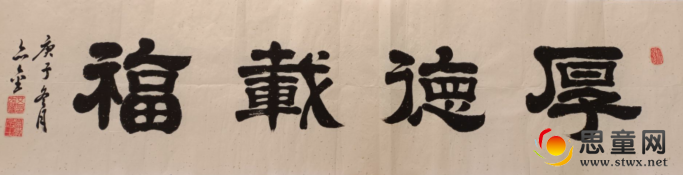 厚德載福
庚子冬月
思童网
www.stwx.net